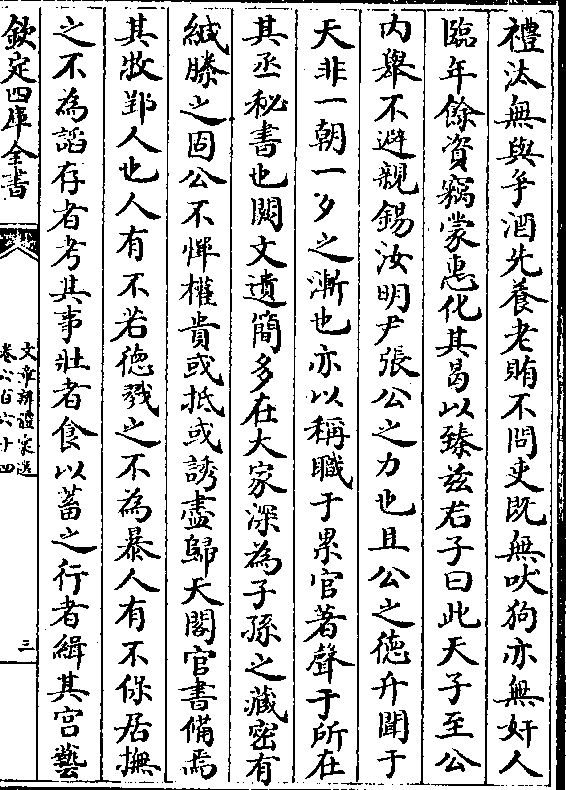 禮汰無與乎酒先養老賄不問吏既無吠狗亦無奸人
臨年餘資竊蒙惠化其曷以臻兹君子曰此天子至公
内舉不避親錫汝明尹張公之力也且公之德升聞于
天非一朝一夕之漸也亦以稱職于累官著聲于所在
其丞秘書也闕文遺簡多在大家深為子孫之藏密有
緘縢之固公不憚權貴或抵或誘盡歸天閣官書備焉
其牧郢人也人有不若德戮之不為暴人有不保居撫
之不為謟存者考其事壯者食以蓄之行者緝其宫藝
欽定四庫全書
文章辨體彚選
卷六百六十四
三